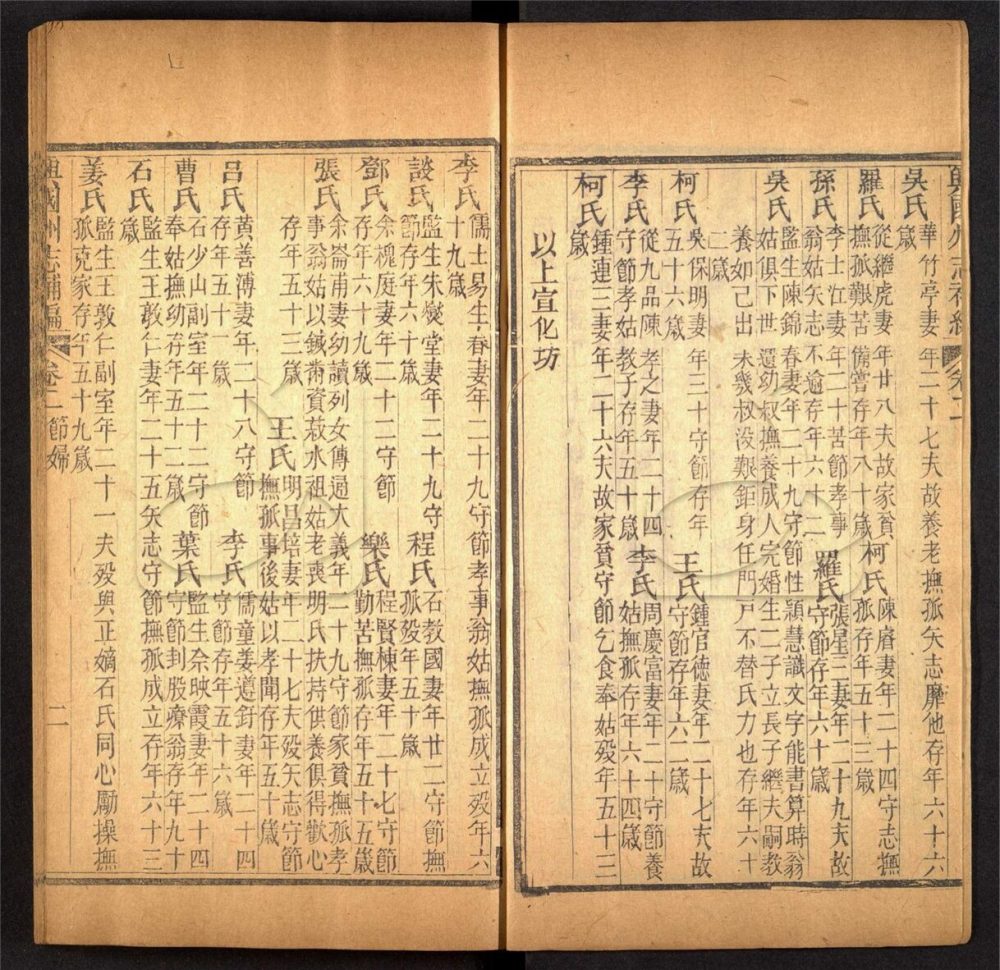 吳氏
華竹亭妻年二十七夫故養老撫孤矢志靡他存年六十六
歲
羅氏
從繼虎妻年廿八夫故家貧
撫孤艱苦備嘗存年八十歲
柯氏
陳廥妻年二十四守志撫
孤存年五十三歲
孫氏
李士江妻年二十苦節孝事
翁姑矢志不逾存年六十二
羅氏
張星三妻年二十九夫故
守節存年六十歲
吳氏
監生陳錦春妻年二十九守節性穎慧識文字能書算時翁
姑俱下世遺幼叔撫養成人完婚生二子立長子繼夫嗣教
養如己出未幾叔没艱鉅身任門戸不替氏力也存年六十
二歲
柯氏
吳保明妻年三十守節存年
五十六歲
王氏
鍾官德妻年二十七夫故
守節存年六二歲
李氏
從九品陳孝之妻年二十四
守節孝姑教子存年五十歲
李氏
周慶富妻年二十守節養
姑撫孤存年六十四歲
柯氏
鍾連三妻年二十六夫故家貧守節乞食奉姑殁年五十三
歲
以上宣化坊
李氏
儒士易生春妻年二十九守節孝事翁姑撫孤成立殁年六
十九歲
談氏
監生朱爕堂妻年二十九守
節存年六十歲
程氏
石教國妻年廿二守節撫
孤殁年五十歲
鄧氏
余槐庭妻年二十二守節
存年六十九歲
樂氏
程賢棟妻年二十七守節
勤苦撫孤存年五十五歲
張氏
余崙甫妻幼讀列女傳通大義年二十九守節家貧撫孤孝
事翁姑以鍼黹資菽水祖姑老喪明氏扶持供養俱得歡心
存年五十三歲
王氏
明昌培妻年二十七夫殁矢志守節
撫孤事後姑以孝聞存年五十歲
呂氏
黃善溥妻年二十八守節
存年五十一歲
李氏
儒童姜遵釪妻年二十四
守節存年五十六歲
曹氏
石少山副室年二十二守節
奉姑撫幼存年五十二歲
葉氏
監生佘映霞妻年二十四
守節刲股療翁存年九十
石氏
監生王敦仁妻年二十五矢志守節撫孤成立存年六十三
歲
姜氏
監生王敦仁副室年二十一夫殁與正嫡石氏同心勵操撫
孤克家存年五十九歲
興國州志補編
卷二節婦
二